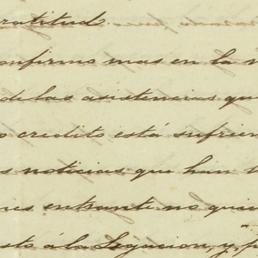 gratitud
onfirma mas en la
de las asistencias qu
o credito está sufrien
s noticias que han
entrante no qui
sto á la Legacion, y, p